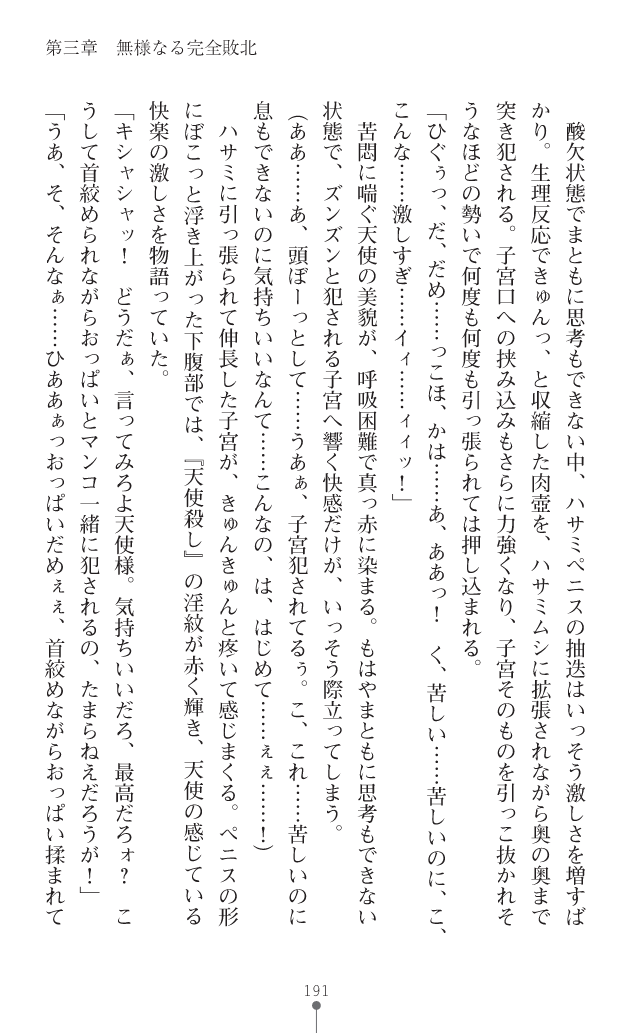 第三章　無様なる完全敗北
　酸欠状態でまともに思考もできない中、ハサミペニスの抽迭はいっそう激しさを増すば
かり。生理反応できゅんっ、と収縮した肉壺を、ハサミムシに拡張されながら奥の奥まで
突き犯される。子宮口への挟み込みもさらに力強くなり、子宮そのものを引っこ抜かれそ
うなほどの勢いで何度も何度も引っ張られては押し込まれる。
「ひぐぅっ、だ、だめ……っこほ、かは……あ、ああっ！　く、苦しい……苦しいのに、こ、
こんな……激しすぎ……イィ……ィィッ！」
　苦悶に喘ぐ天使の美貌が、呼吸困難で真っ赤に染まる。もはやまともに思考もできない
状態で、ズンズンと犯される子宮へ響く快感だけが、いっそう際立ってしまう。
（ああ……あ、頭ぼーっとして……うあぁ、子宮犯されてるぅ。こ、これ……苦しいのに
息もできないのに気持ちいいなんて……こんなの、は、はじめて……ぇぇ……！）
　ハサミに引っ張られて伸長した子宮が、きゅんきゅんと疼いて感じまくる。ペニスの形
にぼこっと浮き上がった下腹部では、『天使殺し』の淫紋が赤く輝き、天使の感じている
快楽の激しさを物語っていた。
「キシャシャッ！　どうだぁ、言ってみろよ天使様。気持ちいいだろ、最高だろォ？　こ
うして首絞められながらおっぱいとマンコ一緒に犯されるの、たまらねえだろうが！」
「うあ、そ、そんなぁ……ひああぁっおっぱいだめぇぇ、首絞めながらおっぱい揉まれて
191